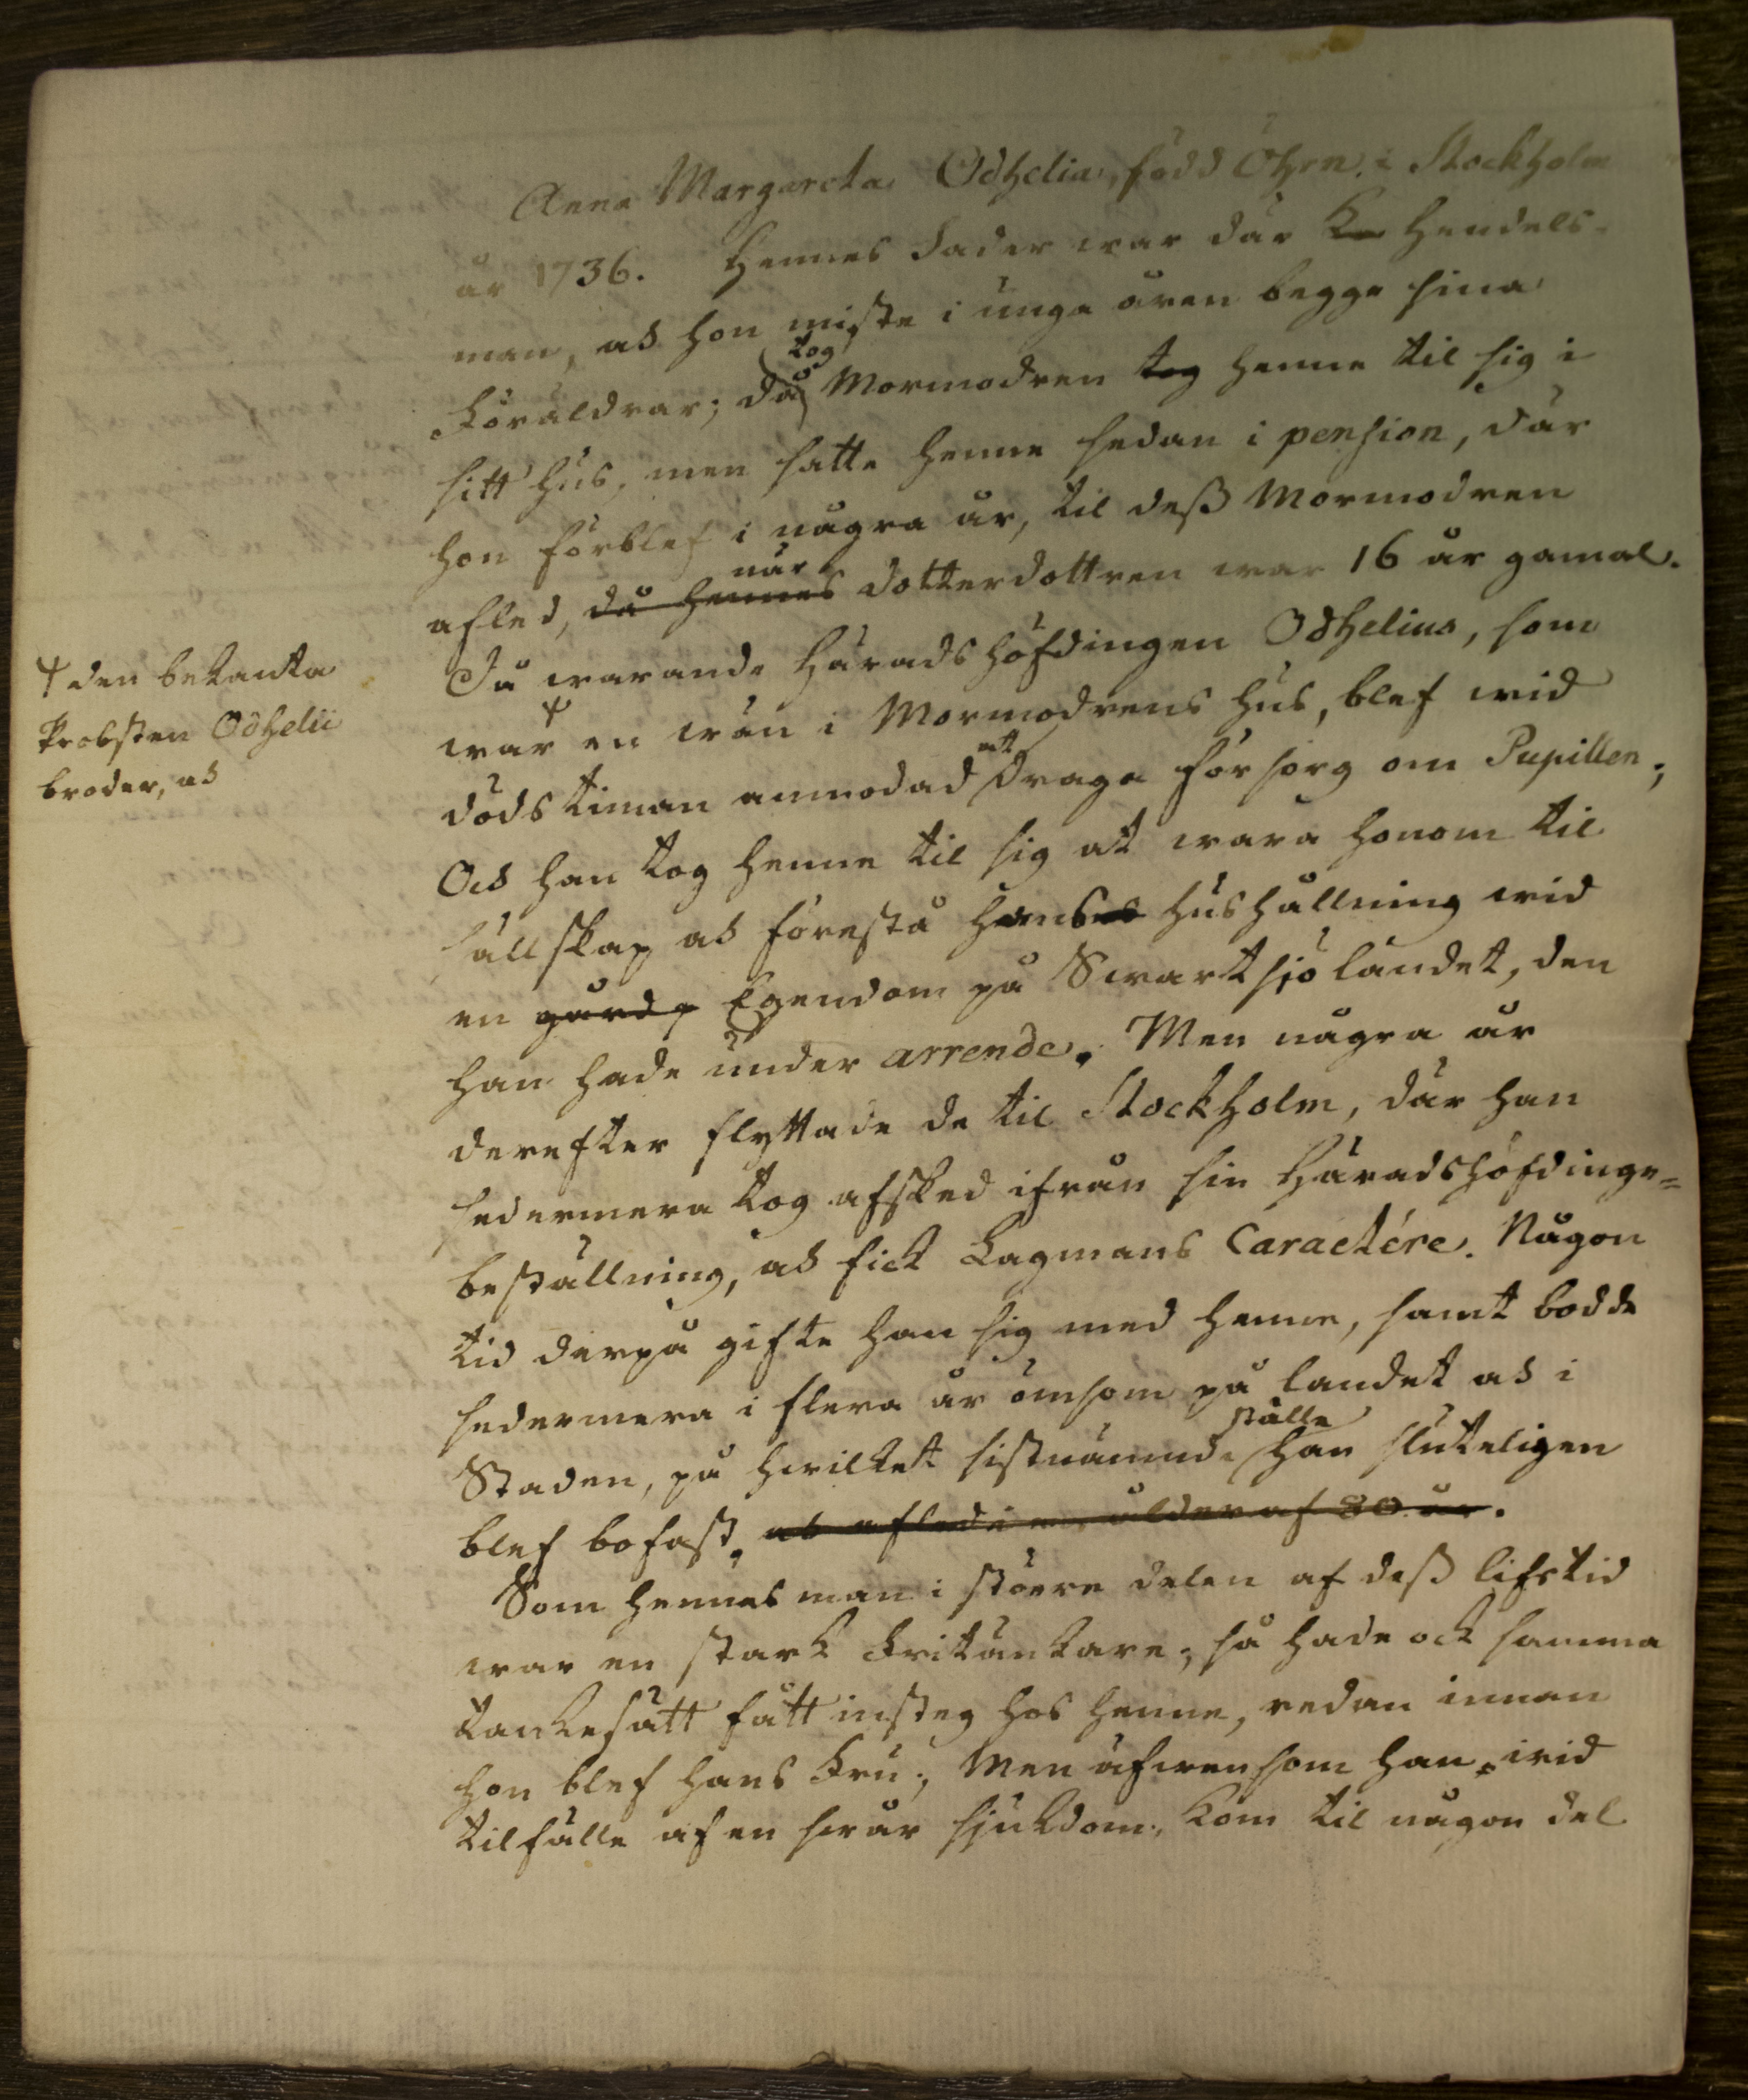 Anna Margareta Odhelia, född Öhrn. i Stockholm
år 1736. Hennes Fader war där Handels-
man, och hon miste i unga åren begge sina
Föräldrar; då tog Mormodren tog henne til sig i
sitt hus, men satte henne sedan i pension, där
hon förblef i några år, til dess Mormodren
afled, då hennes när dotterdottren war 16 år gamal.
Då warande Häradshöfdingen Odhelius, som
war ☨ en wän i Mormodrens hus, blef wid
☨ den bekanta
Probsten Odhelii
broder, och
dödstiman anmodad att draga försorg om Pupillen;
Och han tog henne til sig at wara honom til
sällskap och förestå hans hushållning wid
en gård Egendom på Swartsjölandet, den
han hade under arrende. Men några år
derefter flyttade de til Stockholm, där han
sedermera tog afsked ifrån sin Häradshöfdinge=
beställning, och fick Lagmans Caractére. Någon
tid derpå gifte han sig med henne, samt bodde
sedermera i flera år ömsom på landet och i
Staden, på hwilket sistnämnde ställe han sluteligen
blef bofast, och afled i en ålder af 80 år.
Som hennes man i större delen af dess lifstid
war en stark Fritänkare; så hade ock samma
tankesätt fått insteg hos henne, redan innan
hon blef hans Fru; Men äfwen som han, wid
tilfälle af en swår sjukdom, kom til någon del